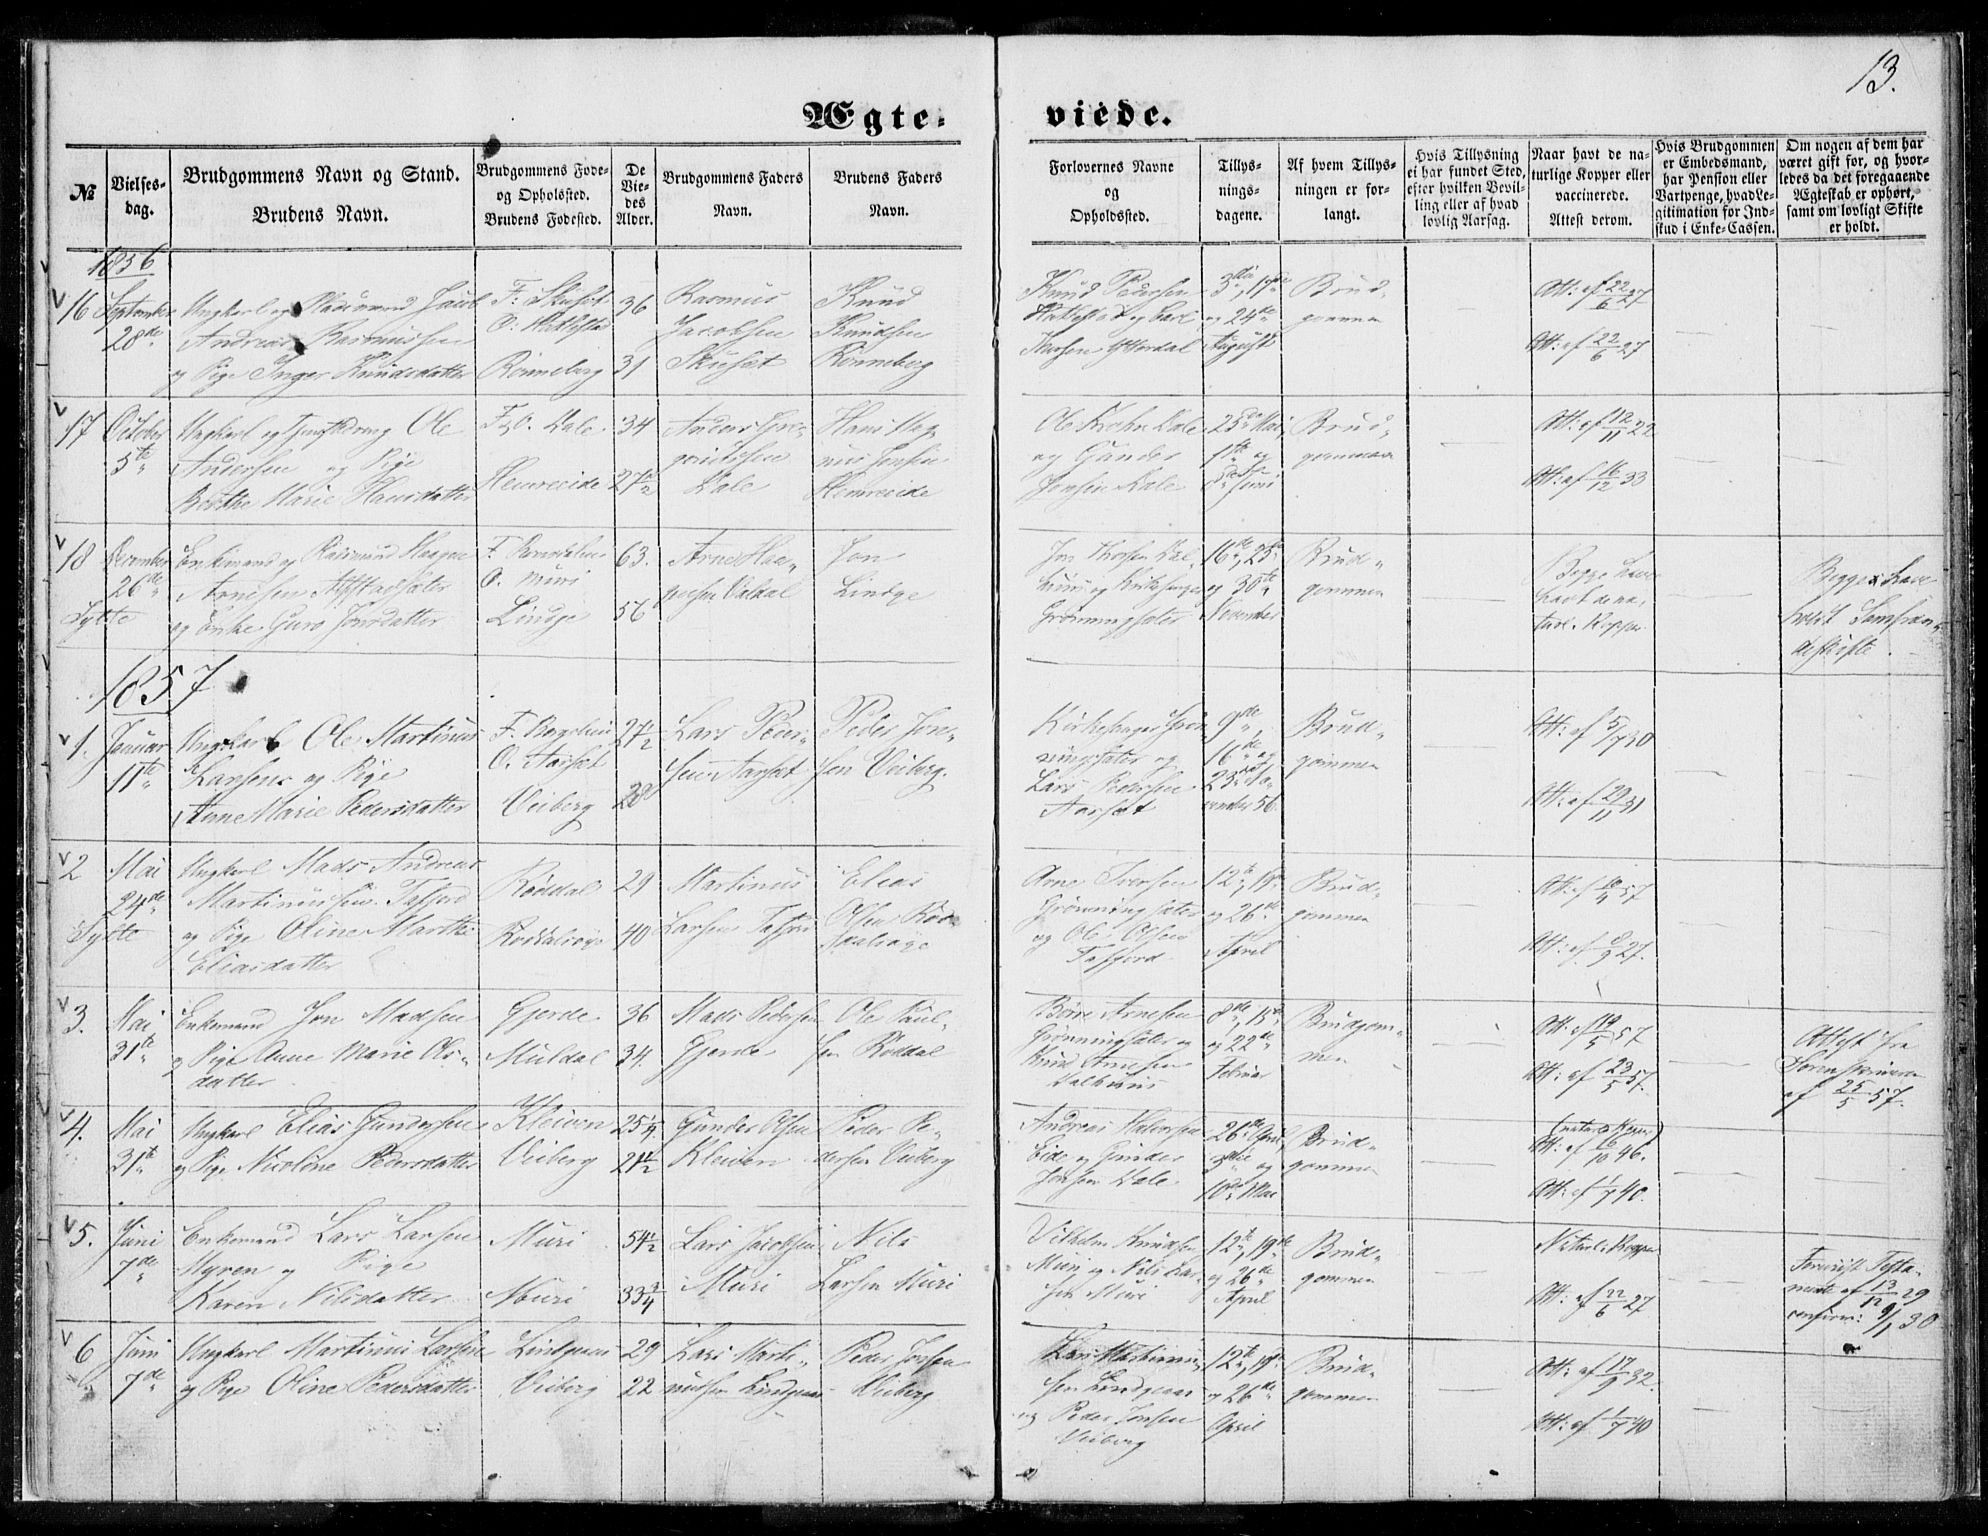 13.
Ægte-
viede.
№
Vielses-
dag.
Brudgommens Navn og Stand.
Brudens Navn.
Brudgommens Føde-
og Opholdssted.
Brudens Fødested.
De
Vie-
des
Alder.
Brudgommens Faders
Navn.
Brudens Faders
Navn.
Forlovernes Navne
og
Opholdssted.
Tillys-
nings-
dagene.
Af hvem Tillys-
ningen er for-
langt.
Hvis Tillysning
ei har fundet Sted,
efter hvilken Bevil-
ling eller af hvad
lovlig Aarsag.
Naar havt de na-
turlige Kopper eller
vaccinerede.
Attest derom.
Hvis Brudgommen
er Embedsmand,
har Pension eller
Vartpenge, hvad Le-
gitimation for Ind-
skud i Enke-Cassen.
Om nogen af dem har
været gift før, og hvor-
ledes da det foregaaende
Ægteskab er ophørt,
samt om lovligt Skifte
er holdt.
1856
16
September
28de
Ungkarl og
Andreas Rasmussen
og Pige Inger Knudsdatter
Rønneberg
36
31
Rasmus
Jacobsen
Skuset
Knud
Knudsen
Rønneberg
Knud Pedersen
3die, 17de
og 24de
August
Brud-
gommen
Att: af 22/6 27
Att: af 22/6 27
17
October
5te
Ungkarl og Ole
Andersen og Pige
Berthe Marie Hansdatter
F. & O. Dale
34
27 1/2
Dale
Ole Dale
og Gunder
Jonsen Dale
25de Mai,
1ste og
8de Juni
Brud-
gommen
Att: af 12/11 22
Att: af 16/12 33
18
December
26de
Sylte
Enkemand og
Arnesen
og Enke Guro Jonsdatter
O. Muri
Lindge
63.
56
Arne Haa-
gensen Valdal
Jon
Lindge
Grønningsæter
16de, 23de
og 30te
November
Brud-
gommen
Begge have
havt de na-
turl. Kopper
Begge have
holdt Samfræn-
deskifte.
1857
1.
Januar
11te
Ungkarl Ole Martinus
Larsen og Pige
Anne Marie Pedersdatter
O. Aarset
Veiberg
27 1/2
28
Lars Peder-
sen Aarset
Peder Jon-
sen Veiberg.
Kirkesanger Grøn-
ningsæter og
Lars Pedersen
Aarset
9de,
16de og
23de No-
vember 56.
Brud-
gommen
Att: af 5/7 30
Att: af 20/11 31
2
Mai
24de
Sylte
Ungkarl Mads Andreas
Martinussen Tafjord
og Pige Oline Marthe
Eliasdatter
Røddal
29
40
Martinus
Larsen Tafjord
Elias
Olsen Rød-
Arne Iversen
Grønningsæter
og Ole Olsen
Tafjord
12te, 19de
og 26de
April
Brud-
gommen
3.
Mai
31te
Enkemand Jon Madsen
og Pige Anne Marie Ols-
datter
Gjerde
Muldal
36
34.
Mads Pedersen
Gjerde
Ole Paul-
sen Røddal
Børre Arnesen
Grønningsæter og
Knud Arnesen
8de, 15de
og 22de
Februar
Brudgom-
men
Att: af 19/5 57
Att: af 23/5 57.
Attest fra
Sorenskriveren
af 25/5 57.
4.
Mai
31te
Ungkarl Elias Gundersen
og Pige Nicoline Pedersdatter
Kleiven
Veiberg
25 1/4.
21 1/2
Gunder Olsen
Kleiven
Peder Pe-
dersen Veiberg
Andreas Halvorsen
Eide og Gunder
Jonsen Dale
26de April,
3die og
10de Mai
Brud-
gommen
Att: af 6/10 46.
Att: af 1/7 40.
5.
Juni
7de
Enkemand Lars Larsen
Myren og Pige
Karen Nilsdatter
Muri
Muri
54 1/2
33 3/4
Lars Jacobsen
Muri
Nils
Larsen Muri
Vilhelm Knudsen
Muri og Nils Lar-
sen Muri
12te, 19de
og 26de
April
Brud-
gommen
Naturl. Kopper
Att: af 22/6 27
Testa-
mente af 13/12 29
confirm: 9/1 30
6
Juni
7de
Ungkarl Martinus Larsen
og Pige Oline Pedersdatter
Lindgaas
Veiberg
29
22
Lars Marti-
nussen Lindgaas
Peder Jonsen
Veiberg
Lars Martinus-
sen Lindgaas
og Peder Jonsen
Veiberg
12te, 19de
og 26de
April
Brud-
gommen
Att: af 17/9 32.
Att: af 1/7 40